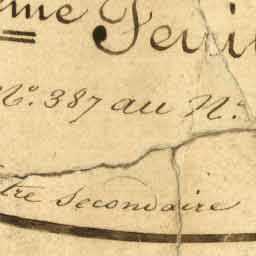 ème Feuil
N.º 387 au N.º
tre Secondaire